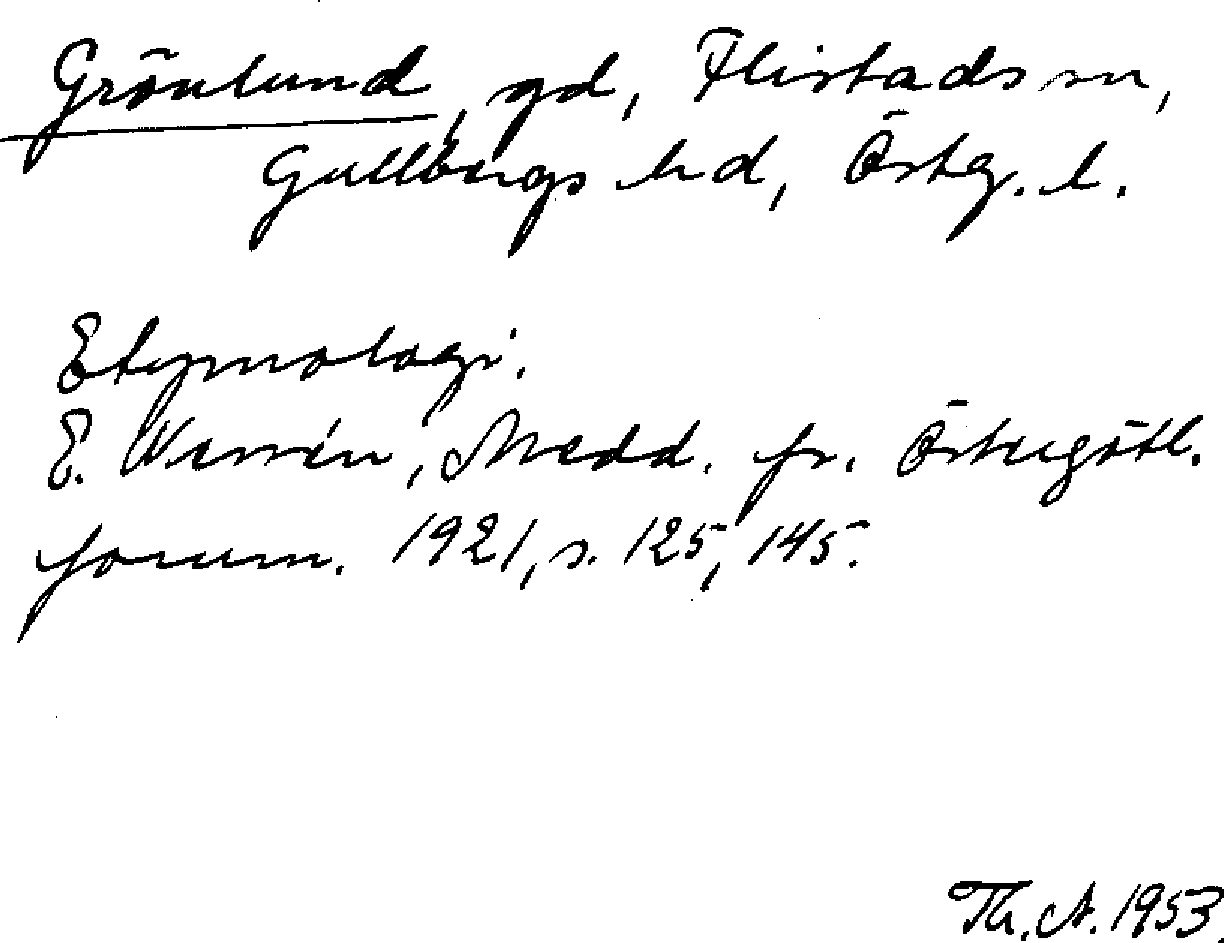 Grönlund, gd, Flistads sn,
Gullbergs hd, Östg. l.
Etymologi.
E. Wessén, Medd. fr. Östergötl.
fornm. 1921, s. 125, 145.
Th. A. 1953.